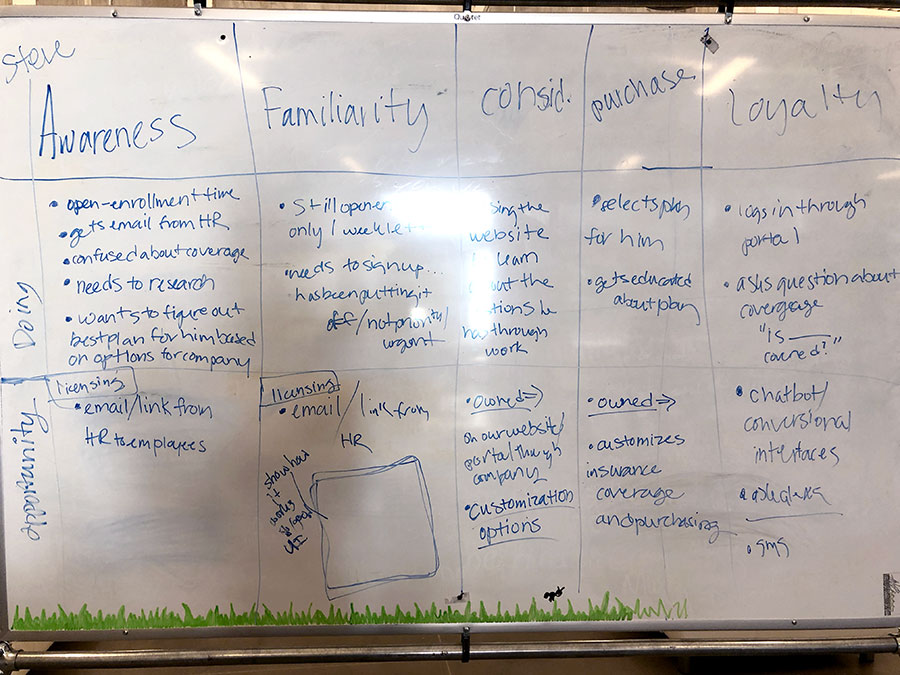 Quartet
Steve
Awareness
Familiarity
consid.
purchase
Loyalty
Doing
• open-enrollment time
• gets email from HR
• confused about coverage
• needs to research
• wants to figure out
best plan for him based
on options for company
• Still open
only 1 week left
• needs to sign up...
• has been putting it
off / not priority/
urgent
using the
website
learn
about the
options he
has through
work
• selects plan
for him
• gets educated
about plan
• logs in through
portal
• asks question about
covergage
"is ___
covered?"
Opportunity
licensing
• email/link from
HR to employees
licensing
• email / link from
HR
show how
it
works
UI
• owned →
on our website/
portal through
company
• Customization
options
• owned →
• customizes
insurance
coverage
and purchasing
• chatbot/
conversional
interfaces
• sms